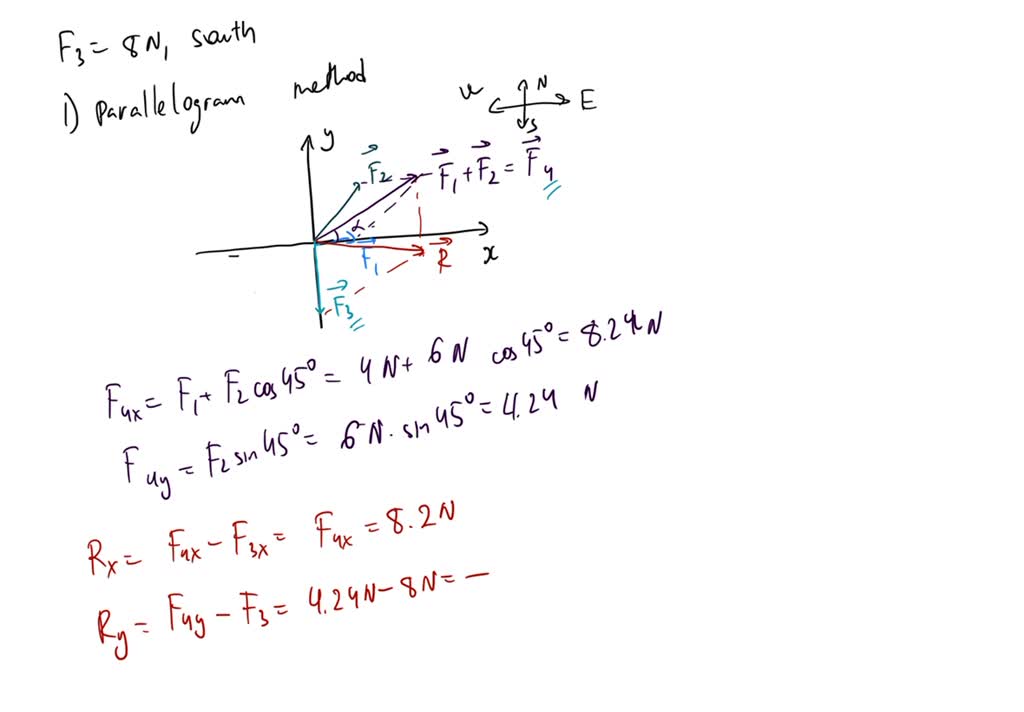 F₃ = 8N, south
1) Parallelogram method
N
W E
S
y
F⃗₂ F⃗₁ + F⃗₂ = F⃗₄
α
F⃗₁ R⃗ x
F⃗₃
F₄ₓ = F₁ + F₂ cos 45° = 4N + 6N cos 45° = 8.24N
F₄y = F₂ sin 45° = 6N · sin 45° = 4.24 N
Rₓ = F₄ₓ − F₃ₓ = F₄ₓ = 8.2N
Ry = F₄y − F₃ = 4.24N − 8N = −